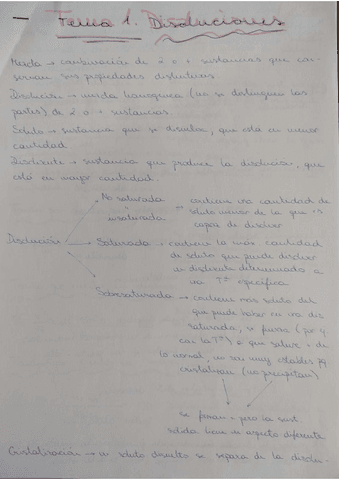 Tema 1. Disoluciones
Mezcla → combinación de 2 o + sustancias que con-
servan sus propiedades distintivas.
Disolución → mezcla homogénea (no se distinguen las
partes) de 2 o + sustancias.
Soluto → sustancia que se disuelve, que está en menor
cantidad.
Disolvente → sustancia que produce la disolución, que
está en mayor cantidad.
No saturada
o
insaturada
→ contiene una cantidad de
soluto menor de la que es
capaz de disolver
Disolución
Saturada → contiene la máx. cantidad
de soluto que puede disolver
un disolvente determinado a
una Tª específica
Sobresaturada → contiene más soluto del
que puede haber en una dis
saturada, se fuerza
con la Tª) a que sature + de
lo normal, no son muy estables
cristalizan (no precipitan)
se forman pero la sust.
sólida tiene un aspecto diferente
Cristalización → un soluto disuelto se separa de la disolu-